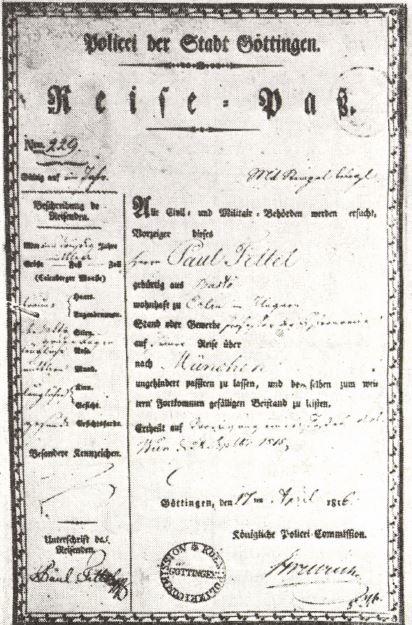 Policei der Stadt Göttingen.
Reise-Paß.
Nro. 229.
Gültig auf ein Jahr.
Beschreibung des
Reisenden.
Alter Jahre
Größe Fuß Zoll
(Calenberger Maaße)
Haare.
Augenbraunen.
Stirn.
Nase.
Mund.
Kinn.
Gesicht.
Gesichtsfarbe.
Besondere Kennzeichen.
Unterschrift des
Reisenden.
Alle Civil- und Militair-Behörden werden ersucht,
Vorzeiger dieses
Herr Paul Tittel
gebürtig aus
wohnhaft zu Erlau in Ungarn
Stand oder Gewerbe Professor der Astronomie
auf einer Reise über
nach München
ungehindert passiren zu lassen, und demselben zum wei-
tern Fortkommen gefälligen Beistand zu leisten.
Ertheilt auf
Göttingen, den 17ten April 1816.
Königliche Policei-Commission.
GÖTTINGEN